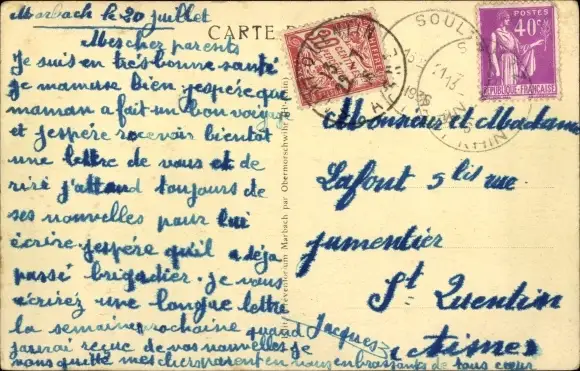 Marbach le 20 juillet
Mes cher parents
Je suis en très bonne santé
je mamuse bien jespére que
maman a fait un bon voyage
et jespére recevoir bientot
une lettre de vous et de
riri j'attand toujours de
ses nouvelles pour lui
écrire. jespére qu'il a déja
passé brigadier. je vous
écrirez une longue lettre
la semaine prochaine quand
jaurai reçue de vos nouvelles je
vous quitte mes chers parent en vous enbrassants de tous cœur
Jacques
CARTE
POSTES
40c
RÉPUBLIQUE FRANÇAISE
SOULTZ
1936
RHIN
Preventorium Marbach par Obermorschwihr
Monsieur et Madame
Lafont 9 bis rue
jumentier
St Quentin
(Aisne)